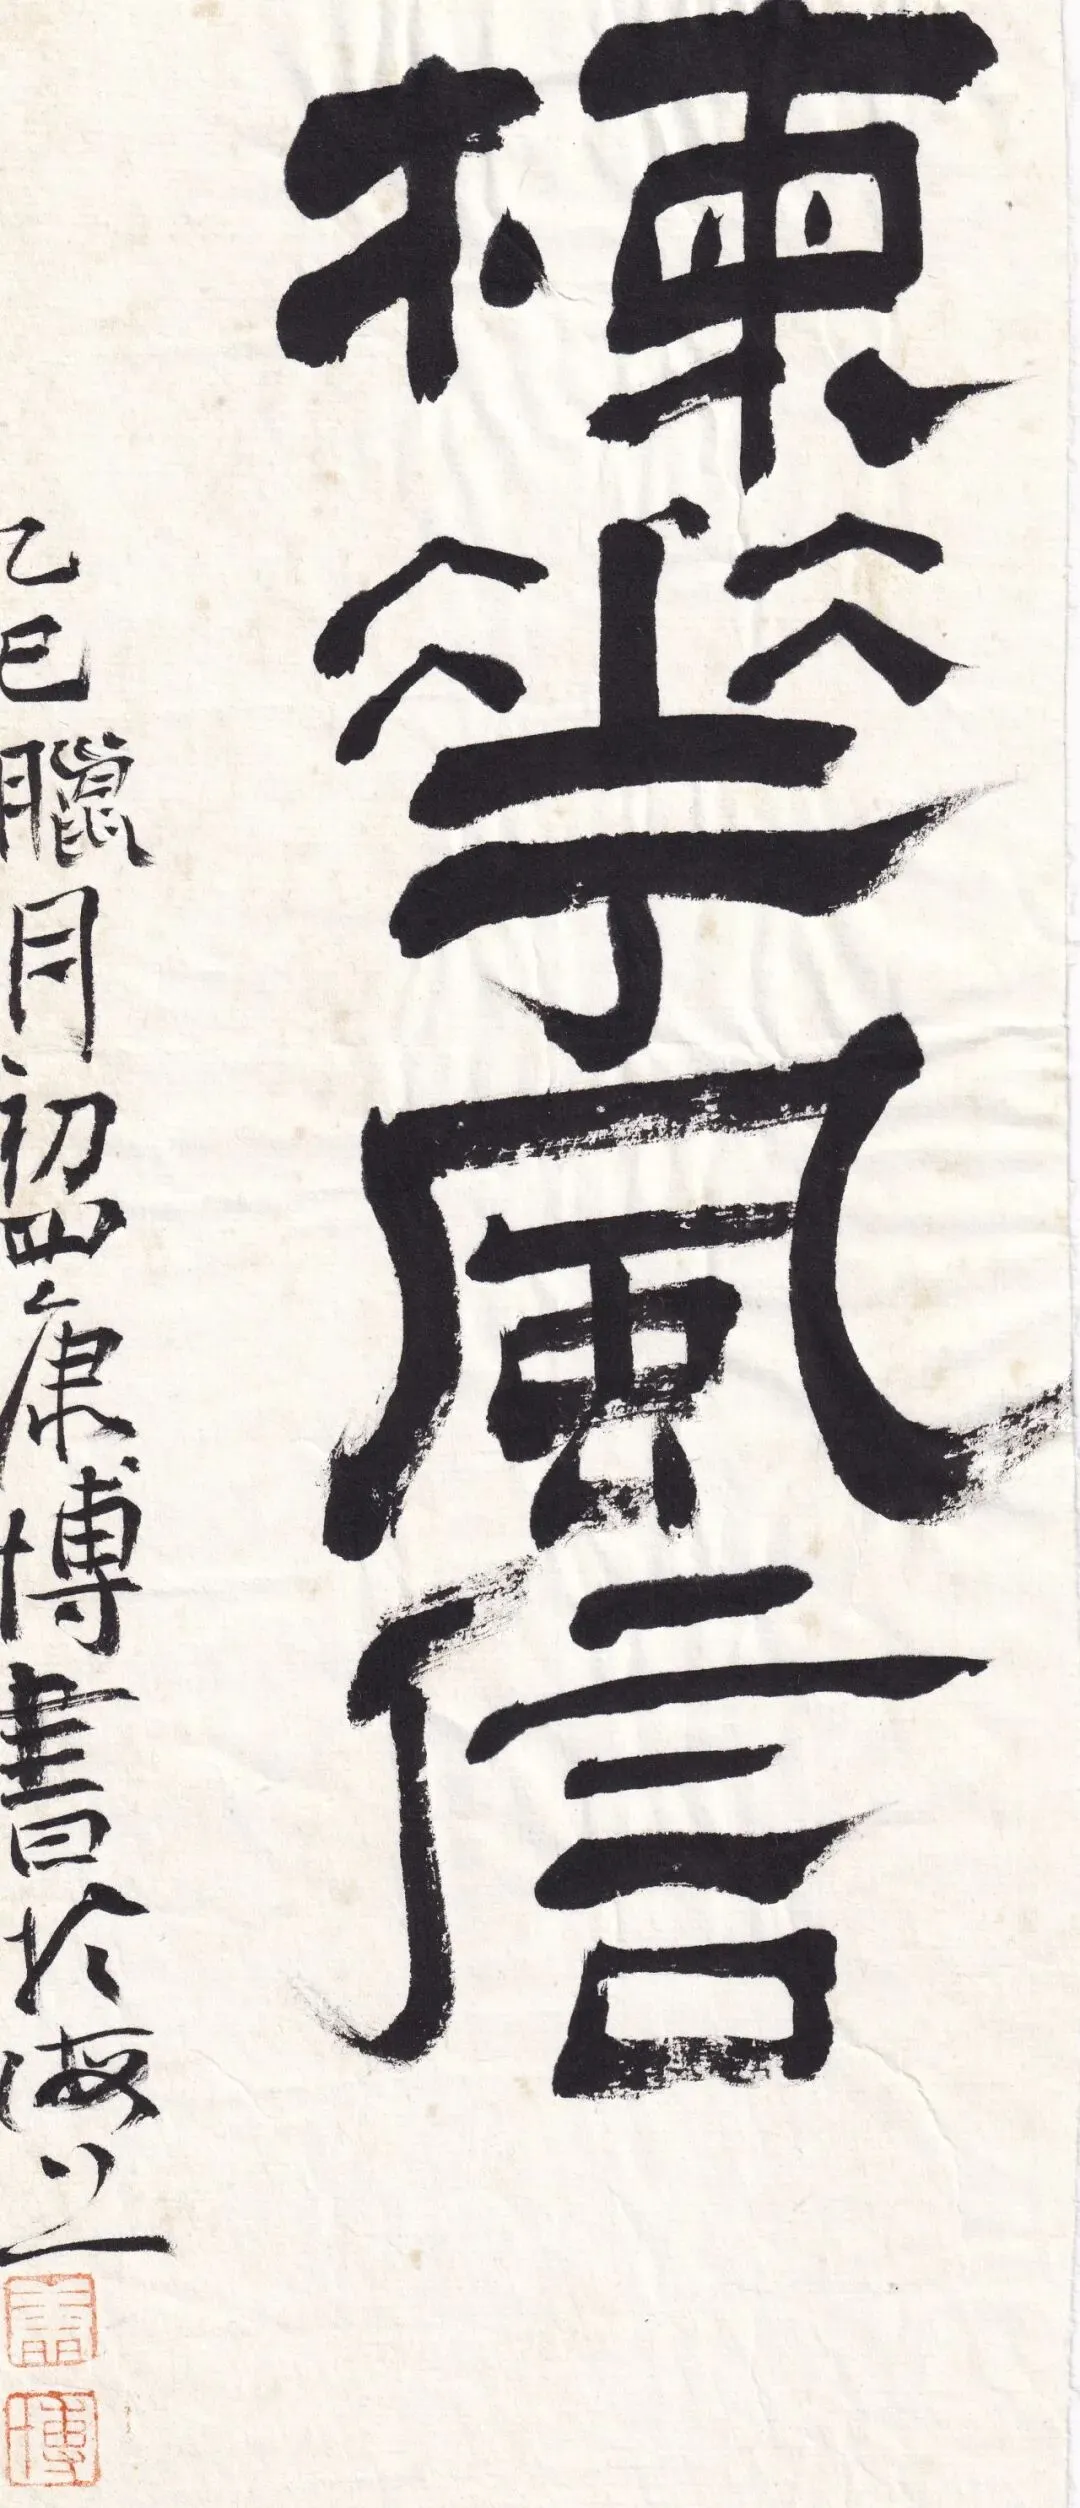 楝華風信
乙巳臘月初四康博書於海上
博